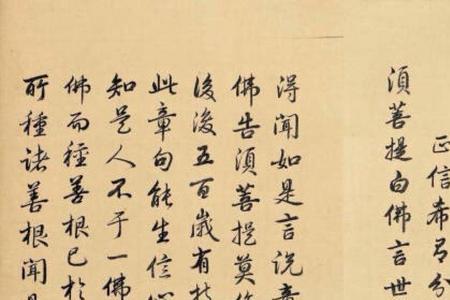 正信希有分
須菩提白佛言世
得聞如是言說章
佛告須菩提莫作
後後五百歲有持
此章句能生信心
知是人不于一佛
佛而種善根已於
所種諸善根聞是